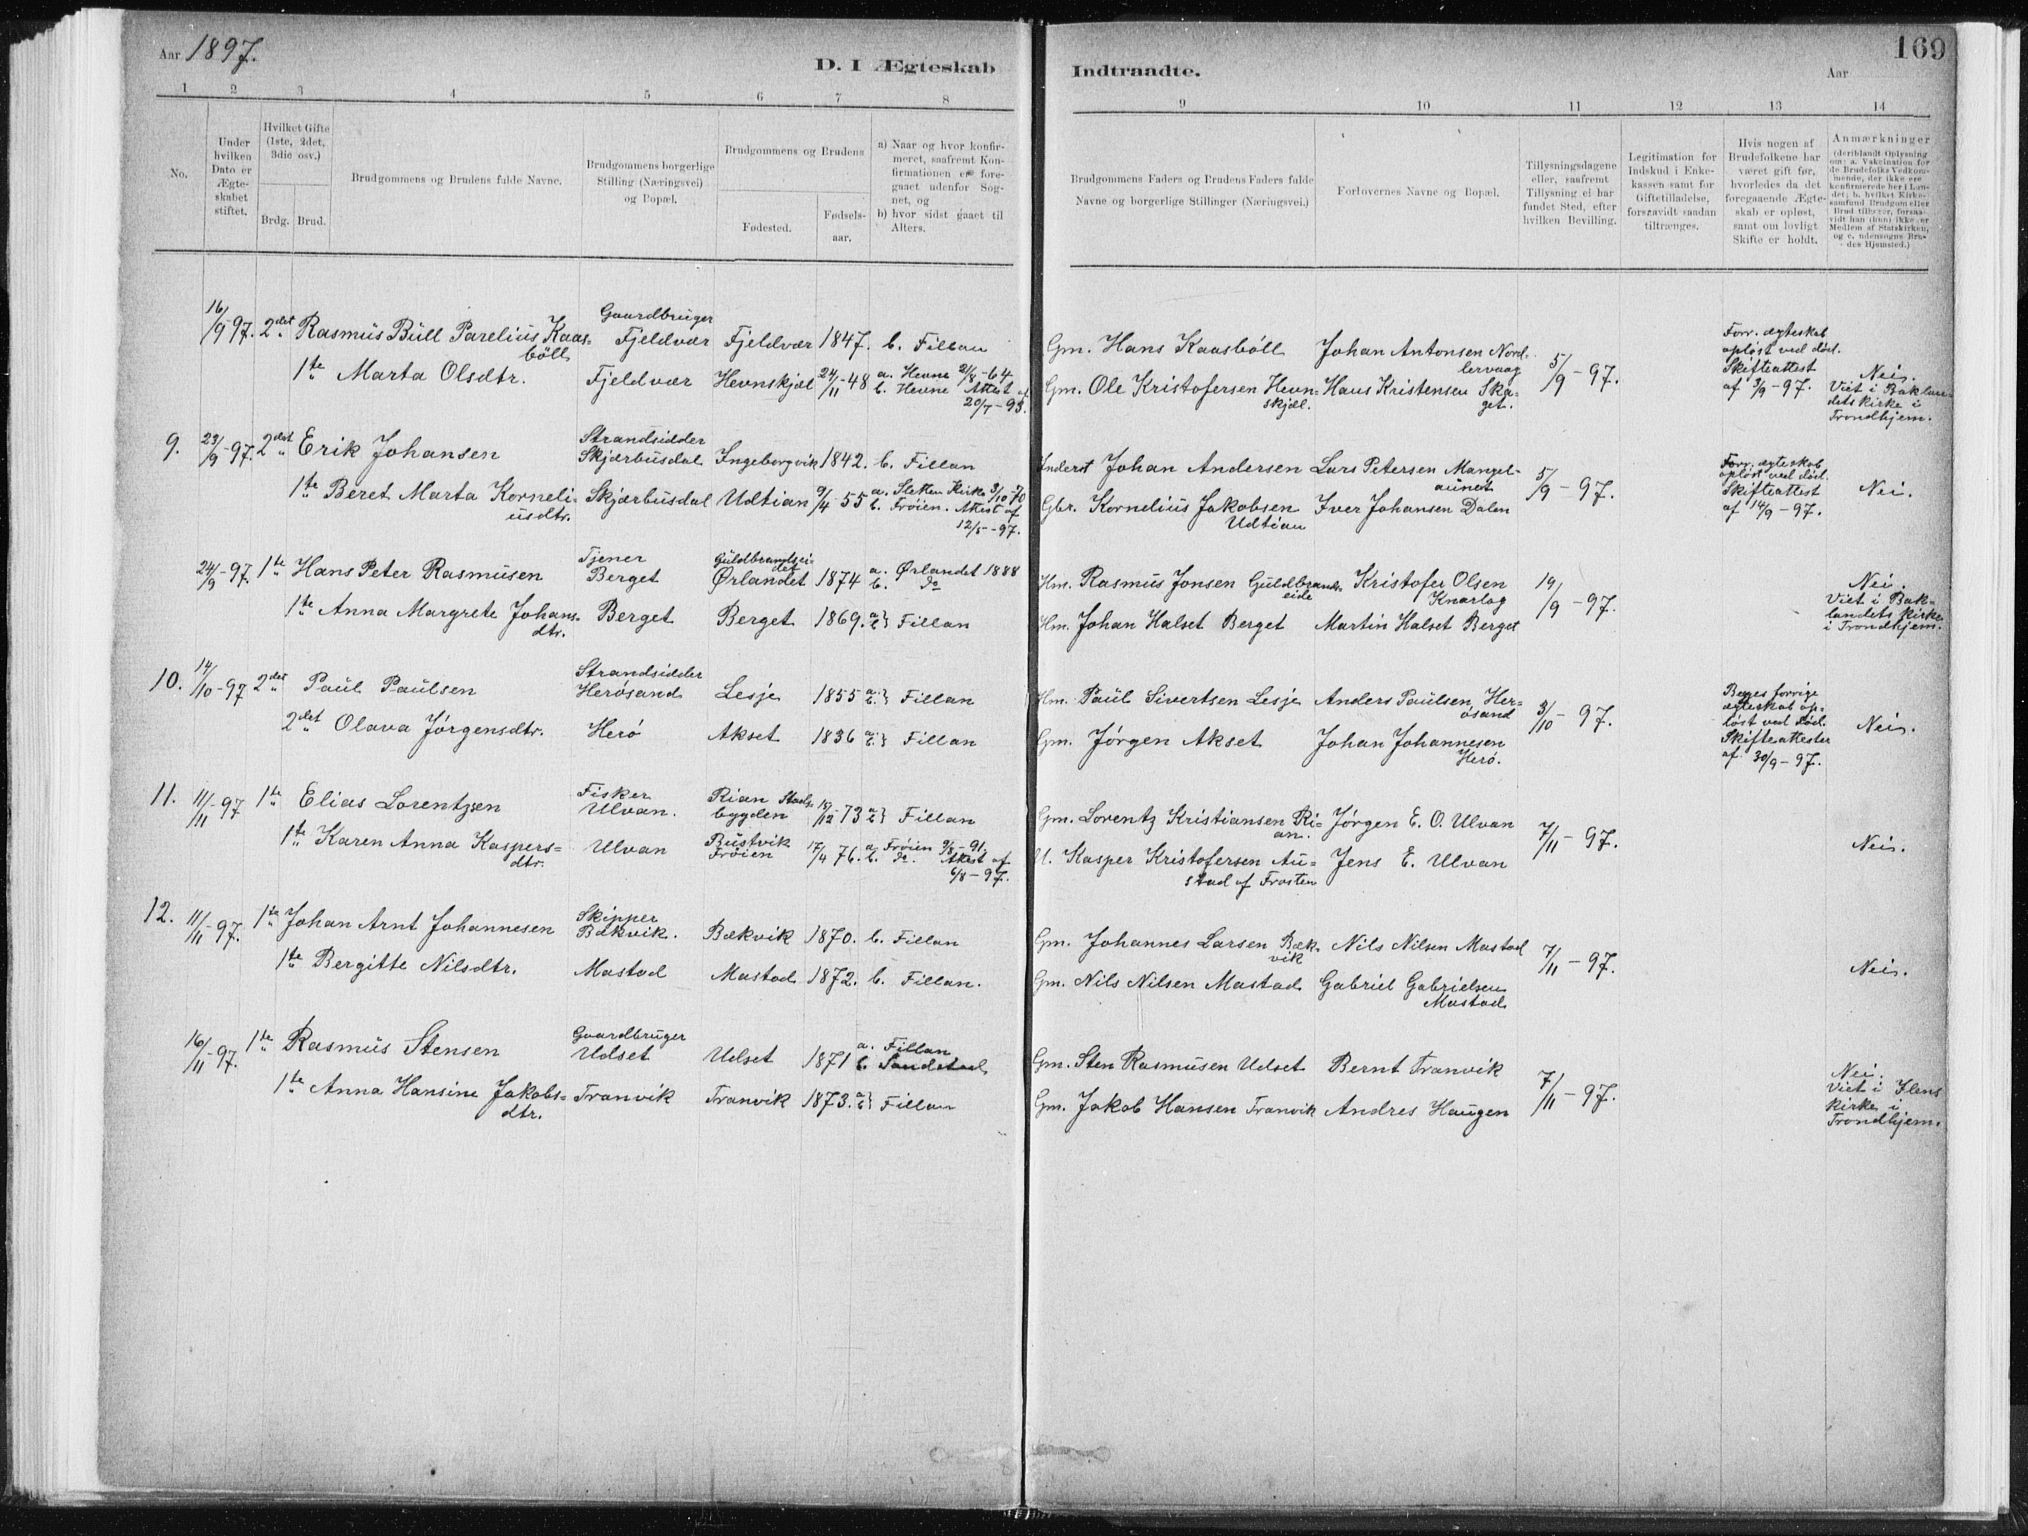 Aar 1897.
D. I Ægteskab
Indtraadte.
Aar
169
1 2 3 4 5 6 7 8
9 10 11 12 13 14
No.
Under hvilken Dato er Ægteskabet stiftet.
Hvilket Gifte (1ste, 2det, 3die osv.)
Brdg. Brud.
Brudgommens og Brudens fulde Navne.
Brudgommens borgerlige Stilling (Næringsvei) og Bopæl.
Brudgommens og Brudens
Fødested.
Fødselsaar.
a) Naar og hvor konfirmeret, saafremt Konfirmationen er foregaaet udenfor Sognet, og
b) hvor sidst gaaet til Alters.
Brudgommens Faders og Brudens Faders fulde Navne og borgerlige Stillinger (Næringsvei.)
Forlovernes Navne og Bopæl.
Tillysningsdagene eller, saafremt Tillysning ei har fundet Sted, efter hvilken Bevilling.
Legitimation for Indskud i Enkekassen samt for Giftetilladelse, forsaavidt saadan tiltrænges.
Hvis nogen af Brudefolkene har været gift før, hvorledes da det foregaaende Ægteskab er opløst, samt om lovligt Skifte er holdt.
Anmærkninger
(deriblandt Oplysning om: a. Vakcination for de Brudefolks Vedkommende, der ikke ere konfirmerede her i Landet; b. hvilket Kirkesamfund Brudgom eller Brud tilhører, forsaavidt han (hun) ikke er Medlem af Statskirken, og c. udensogns Brudes Hjemsted.)
16/9-97. 2det Rasmus Bull Parelius Kaasböll Gaardbruger Fjeldvær Fjeldvær 1847. b. Fillan
Gm. Hans Kaasböll Johan Antonsen Nordlervaag 5/9-97. Forr. ægteskab opløst ved död. Skifteattest af 3/9-97. Nei. Viet i Baklandets kirke i Trondhjem.
1te Marta Olsdtr. Fjeldvær Hevnskjel 24/11-48 a. Hevne 21/8-64 b. Hevne Attest af 20/7-93.
Gm. Ole Kristofersen Hevnskjel. Hans Kristensen Skaget.
9. 23/9-97. 2det Erik Johansen Strandsidder Skjærbusdal Ingeborgvik 1842. b. Fillan
Inderst Johan Andersen Lars Petersen Mangelaunet 5/9-97. Forr. ægteskab opløst ved död. Skifteattest af 14/9-97. Nei.
1te Beret Marta Korneliusdtr. Skjærbusdal Udtian 9/4 55 a. Sletten Kirke 3/10 70 b. Frøien. Attest af 12/5-97.
Gbr. Kornelius Jakobsen Udtian Iver Johansen Dalen
24/9-97. 1te Hans Peter Rasmusen Tjener Berget Guldbrandseidet Ørlandet 1874 a. Ørlandet 1888 b. do
Hm. Rasmus Jonsen Guldbrandseide Kristofer Olsen Knarlag 19/9-97. Nei. Viet i Baklandets kirke i Trondhjem.
1te Anna Margrete Johansdtr. Berget Berget 1869. a. b.} Fillan
Hm. Johan Halset Berget Martin Halset Berget
10. 14/10-97 2det Paul Paulsen Strandsidder Herøsand Lesje 1855 a. b.} Fillan
Hm. Paul Sivertsen Lesje Anders Paulsen Herøsand 3/10-97. Begges forrige ægteskab opløst ved död. Skifteattester af 30/9-97. Nei.
2det Olava Jørgensdtr. Herø Akset 1836 a. b.} Fillan
Gm. Jørgen Akset Johan Johannesen Herø.
11. 11/11-97 1te Elias Lorentzen Fisker Ulvan. Rian Stadsbygden 18/12-73 a. b.} Fillan
Gm. Lorentz Kristiansen Rian. Jørgen E. O. Ulvan 7/11-97. Nei.
1te Karen Anna Kaspersdtr. Ulvan Bustvik Frøien 17/4 76. a. Frøien 9/8-91. b. do. Attest af 6/8-97.
U. Kasper Kristofersen Austad af Frosten Jens E. Ulvan
12. 11/11-97. 1te Johan Arnt Johannesen Skipper Bækvik. Bækvik 1870. b. Fillan
Gm. Johannes Larsen Bækvik Nils Nilsen Mastad 7/11-97. Nei.
1te Bergitte Nilsdtr. Mastad Mastad 1872. b. Fillan.
Gm. Nils Nilsen Mastad Gabriel Gabrielsen Mastad
16/11-97. 1te Rasmus Stensen Gaardbruger Udset Udset 1871 a. Fillan b. Sandstad
Gm. Sten Rasmusen Udset Bernt Tranvik 7/11-97. Nei. Viet i Ilens kirke i Trondhjem.
1te Anna Hansine Jakobsdtr. Tranvik Tranvik 1873. a. b.} Fillan
Gm. Jakob Hansen Tranvik Andres Haugen